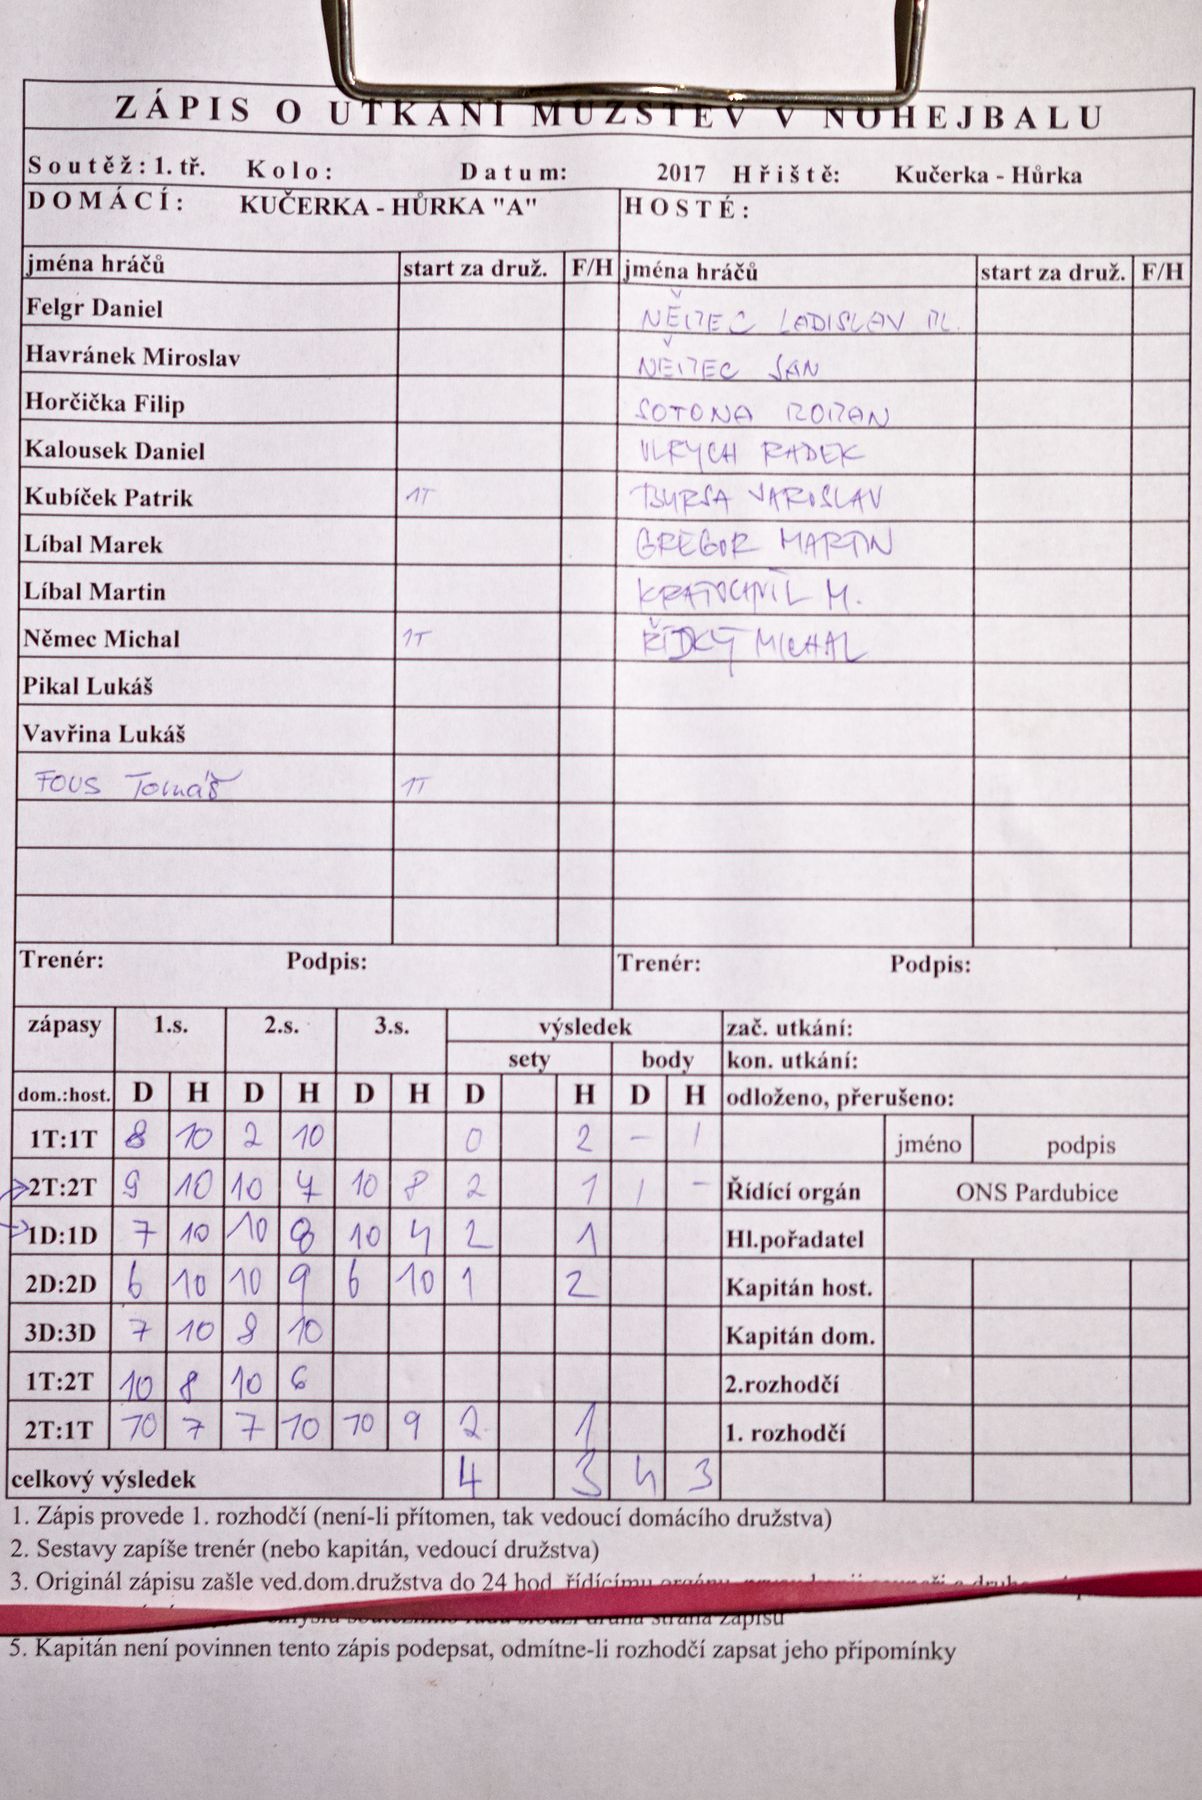 ZÁPIS O UTKÁNÍ MUŽSTEV V NOHEJBALU
Soutěž: 1. tř. Kolo: Datum: 2017 Hřiště: Kučerka - Hůrka
DOMÁCÍ: KUČERKA - HŮRKA "A" HOSTÉ:
jména hráčů start za druž. F/H jména hráčů start za druž. F/H
Felgr Daniel NĚMEC LADISLAV ML.
Havránek Miroslav NĚMEC JAN
Horčička Filip SOTONA ROMAN
Kalousek Daniel ULRYCH RADEK
Kubíček Patrik 1T BURSA JAROSLAV
Líbal Marek GREGOR MARTIN
Líbal Martin KRATOCHVÍL M.
Němec Michal 1T ŘÍDKÝ MICHAL
Pikal Lukáš
Vavřina Lukáš
FOUS Tomáš 1T
Trenér: Podpis: Trenér: Podpis:
zápasy 1.s. 2.s. 3.s. výsledek zač. utkání:
sety body kon. utkání:
dom.:host. D H D H D H D H D H odloženo, přerušeno:
1T:1T 8 10 2 10 0 2 - 1 jméno podpis
2T:2T 9 10 10 7 10 8 2 1 1 - Řídící orgán ONS Pardubice
1D:1D 7 10 10 8 10 4 2 1 Hl.pořadatel
2D:2D 6 10 10 9 6 10 1 2 Kapitán host.
3D:3D 7 10 8 10 Kapitán dom.
1T:2T 10 8 10 6 2.rozhodčí
2T:1T 10 7 7 10 10 9 2 1 1. rozhodčí
celkový výsledek 4 3 4 3
1. Zápis provede 1. rozhodčí (není-li přítomen, tak vedoucí domácího družstva)
2. Sestavy zapíše trenér (nebo kapitán, vedoucí družstva)
3. Originál zápisu zašle ved.dom.družstva do 24 hod. řídícímu orgánu,
soutěžního řádu slouží druhá strana zápisu
5. Kapitán není povinnen tento zápis podepsat, odmítne-li rozhodčí zapsat jeho připomínky